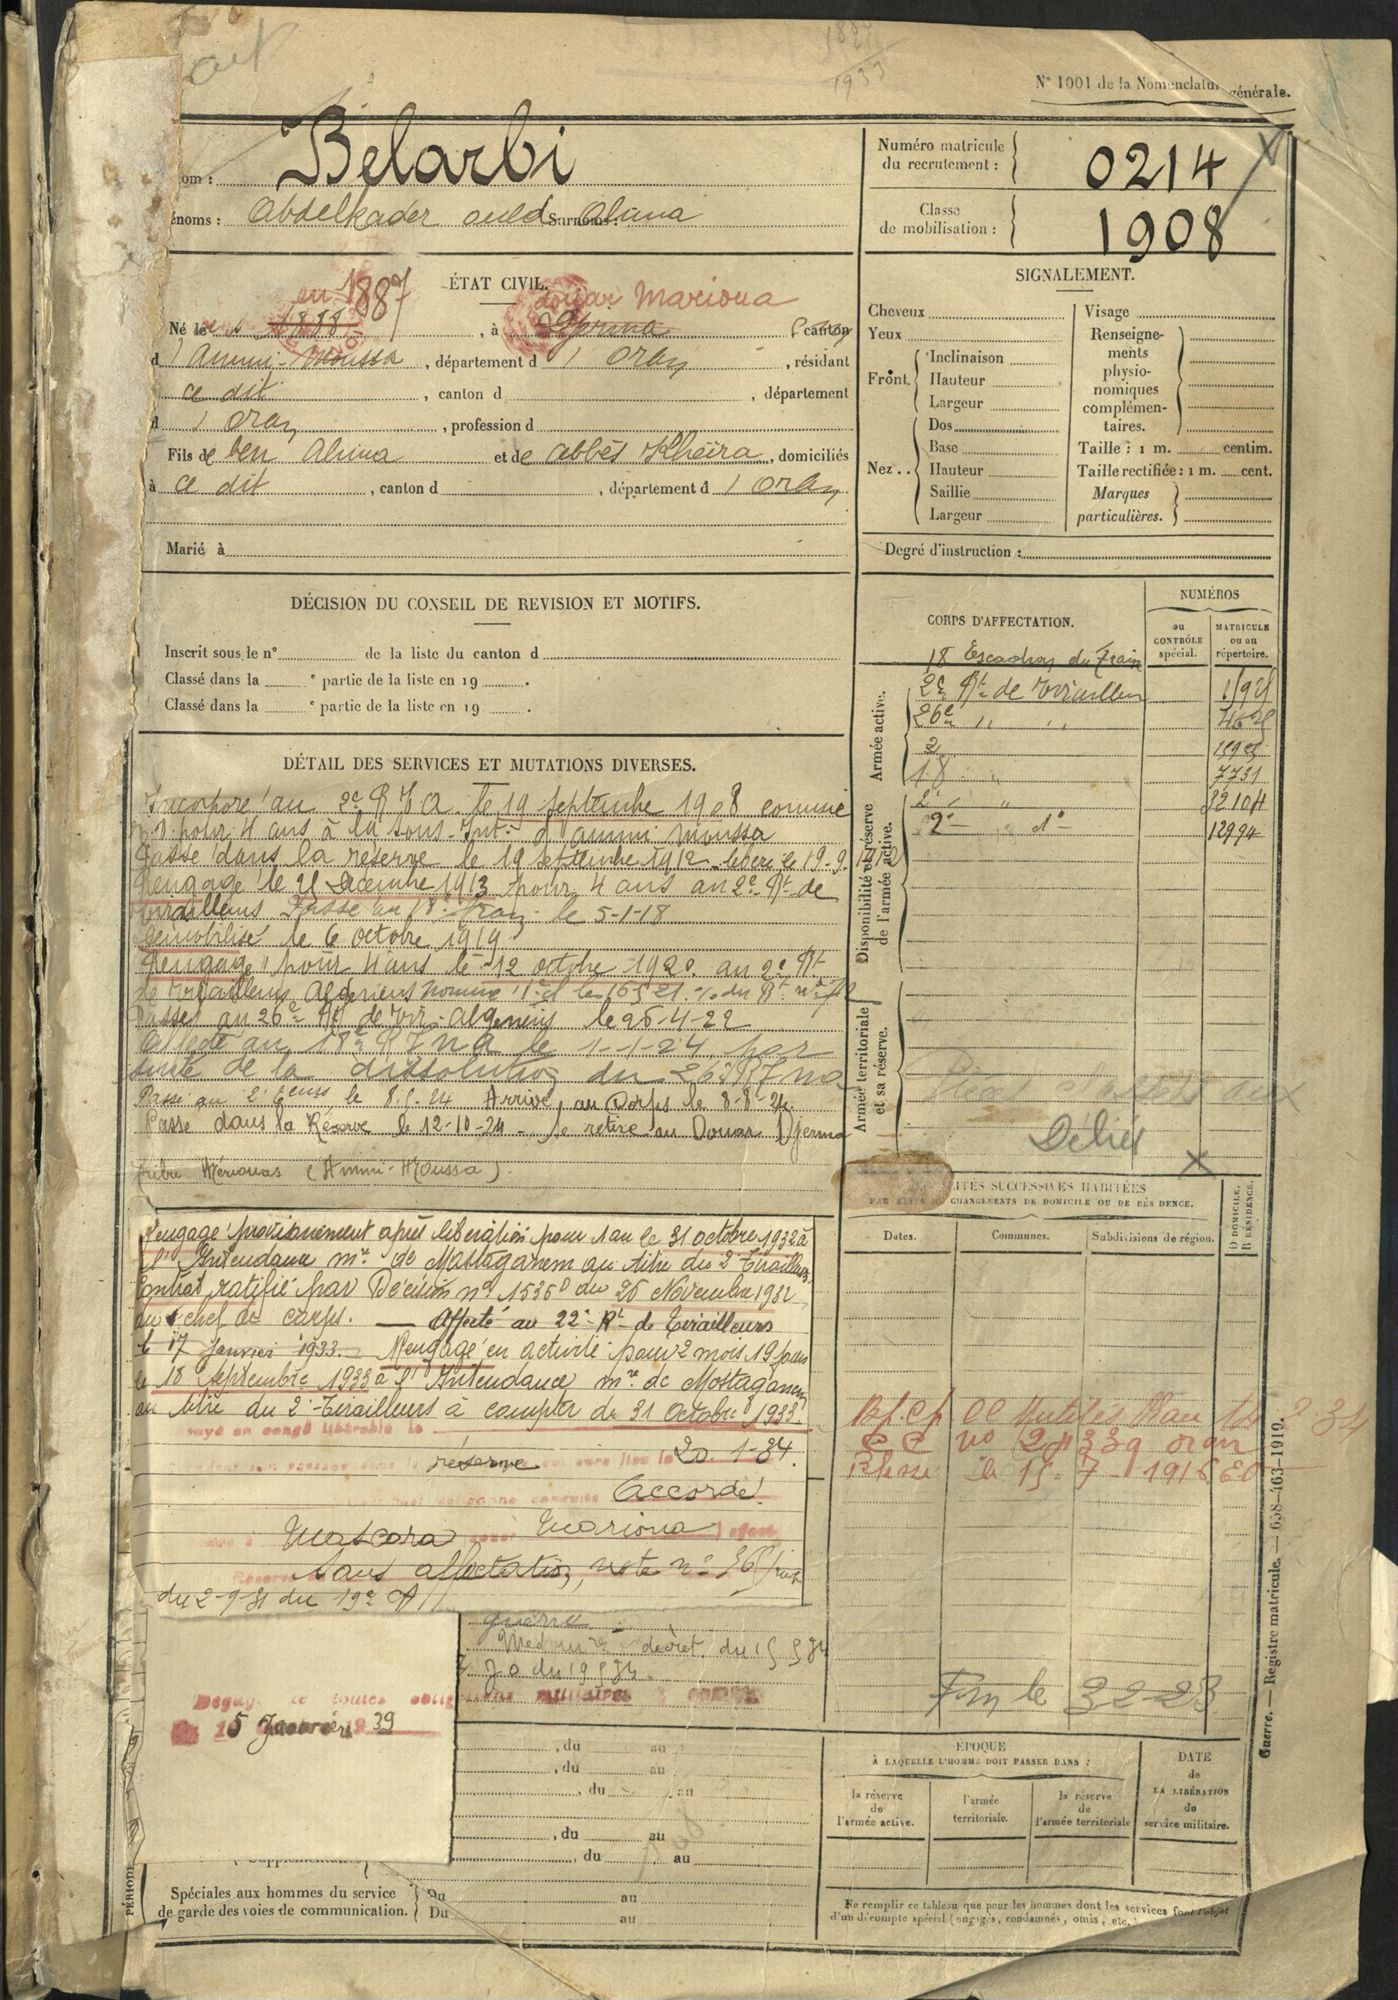 N° 1001 de la Nomenclatur générale.
1933
om : Belarbi
énoms : Abdelkader ould Surnoms : Alima
Numéro matricule du recrutement : 0214
Classe de mobilisation : 1908
ÉTAT CIVIL.
en 1887 douar Marioua
Né le 1888, à canton
d'Ammi-Moussa, département d'Oran, résidant
ce dit, canton d , département
d'Oran, profession d
Fils de ben Alima et de Abbès Kheïra, domiciliés
à ce dit, canton d , département d'Oran
Marié à
SIGNALEMENT.
Cheveux
Yeux
Front. Inclinaison
Hauteur
Largeur
Nez .. Dos
Base
Hauteur
Saillie
Largeur
Visage
Renseignements physionomiques complémentaires.
Taille : 1 m. centim.
Taille rectifiée : 1 m. cent.
Marques particulières.
Degré d'instruction :
DÉCISION DU CONSEIL DE REVISION ET MOTIFS.
Inscrit sous le n° de la liste du canton d
Classé dans la e partie de la liste en 19 .
Classé dans la e partie de la liste en 19 .
CORPS D'AFFECTATION.
NUMÉROS
au CONTRÔLE spécial.
MATRICULE ou au répertoire.
Armée active.
18 Escadron du Train
2e Rt de Tirailleurs
26e " "
2
18 " 7731
2e " "
2e 1294
Disponibilité et réserve de l'armée active.
Armée territoriale et sa réserve.
Déliés
DÉTAIL DES SERVICES ET MUTATIONS DIVERSES.
Incorporé au 2e RTA le 19 septembre 1908 comme
pour 4 ans à la sous-Int. d'Ammi Moussa
Passé dans la réserve le 19 septembre 1912 libéré le 19-9-1912
Rengagé le 21 Décembre 1913 pour 4 ans au 2e Rt de
Tirailleurs Passé au 18e Train le 5-1-18
Démobilisé le 6 octobre 1919
Rengagé pour 4 ans le 12 octobre 1920 au 2e Rt
de Tirailleurs Algériens nommé 1e cl le 16 5 21
Passé au 26e Rt de Tir. Algériens le 26-4-22
Affecté au 18e RTNA le 1-1-24 par
suite de la dissolution du 26e RTNA
Passé au 2e le 8. .24 Arrivé au Corps le 8-8-24
Passé dans la Réserve le 12-10-24 Se retire au Douar Djerma
tribu Mériouas (Ammi-Moussa).
Rengagé provisoirement après libération pour 1 an le 31 octobre 1932 à
l'Intendance mre de Mostaganem au titre du 2e Tirailleurs
Contrat ratifié par Décision n° 1536 D du 26 Novembre 1932
du chef de corps. — Affecté au 22e Rt de Tirailleurs
le 17 Janvier 1933. Rengagé en activité pour 2 mois 19 jours
le 18 Septembre 1933 à l'Intendance mre de Mostaganem
au titre du 2e Tirailleurs à compter du 31 Octobre 1933.
congé libérable le
réserve 20.1-34.
Accordé
Mascara Marioua
Sans affectation, note n°
du 2-9-31 du 19e CA
guerre
décret du
JO du 19
Dégagé de toutes obligations militaires
15 Janvier 1939
LOCALITÉS SUCCESSIVES HABITÉES
PAR SUITE DE CHANGEMENTS DE DOMICILE OU DE RÉSIDENCE.
Dates.
Communes.
Subdivisions de région.
D DOMICILE. R RÉSIDENCE.
2-34
Oran
Blessé le 15-7-1916
Guerre. — Registre matricule. — 658-463-1919.
, du au
, du au
, du au
, du au
, du au
Supplémentaires
Spéciales aux hommes du service de garde des voies de communication.
Du au
Du au
ÉPOQUE
À LAQUELLE L'HOMME DOIT PASSER DANS :
la réserve de l'armée active.
l'armée territoriale.
la réserve de l'armée territoriale
DATE de LA LIBÉRATION du service militaire.
Ne remplir ce tableau que pour les hommes dont les services font l'objet
d'un décompte spécial (engagés, condamnés, omis, etc.)